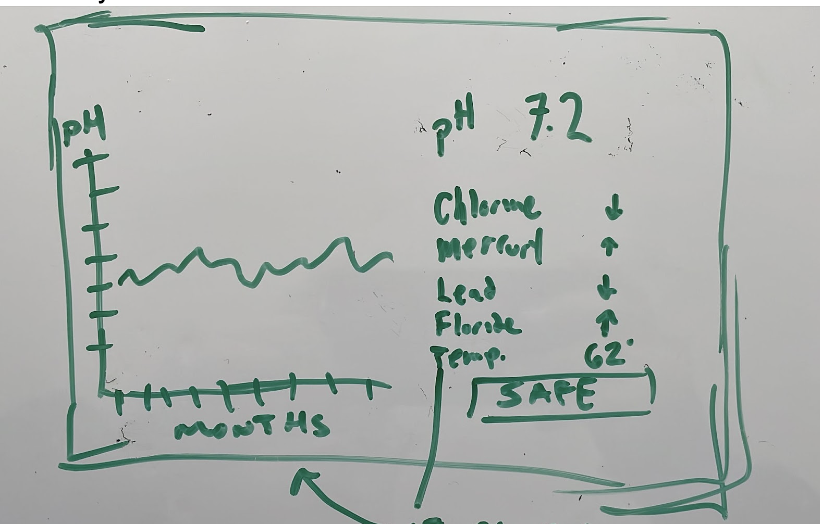 pH
pH 7.2
Chlorine ↓
Mercury ↑
Lead ↓
Floride ↑
Temp. 62°
SAFE
MONTHS